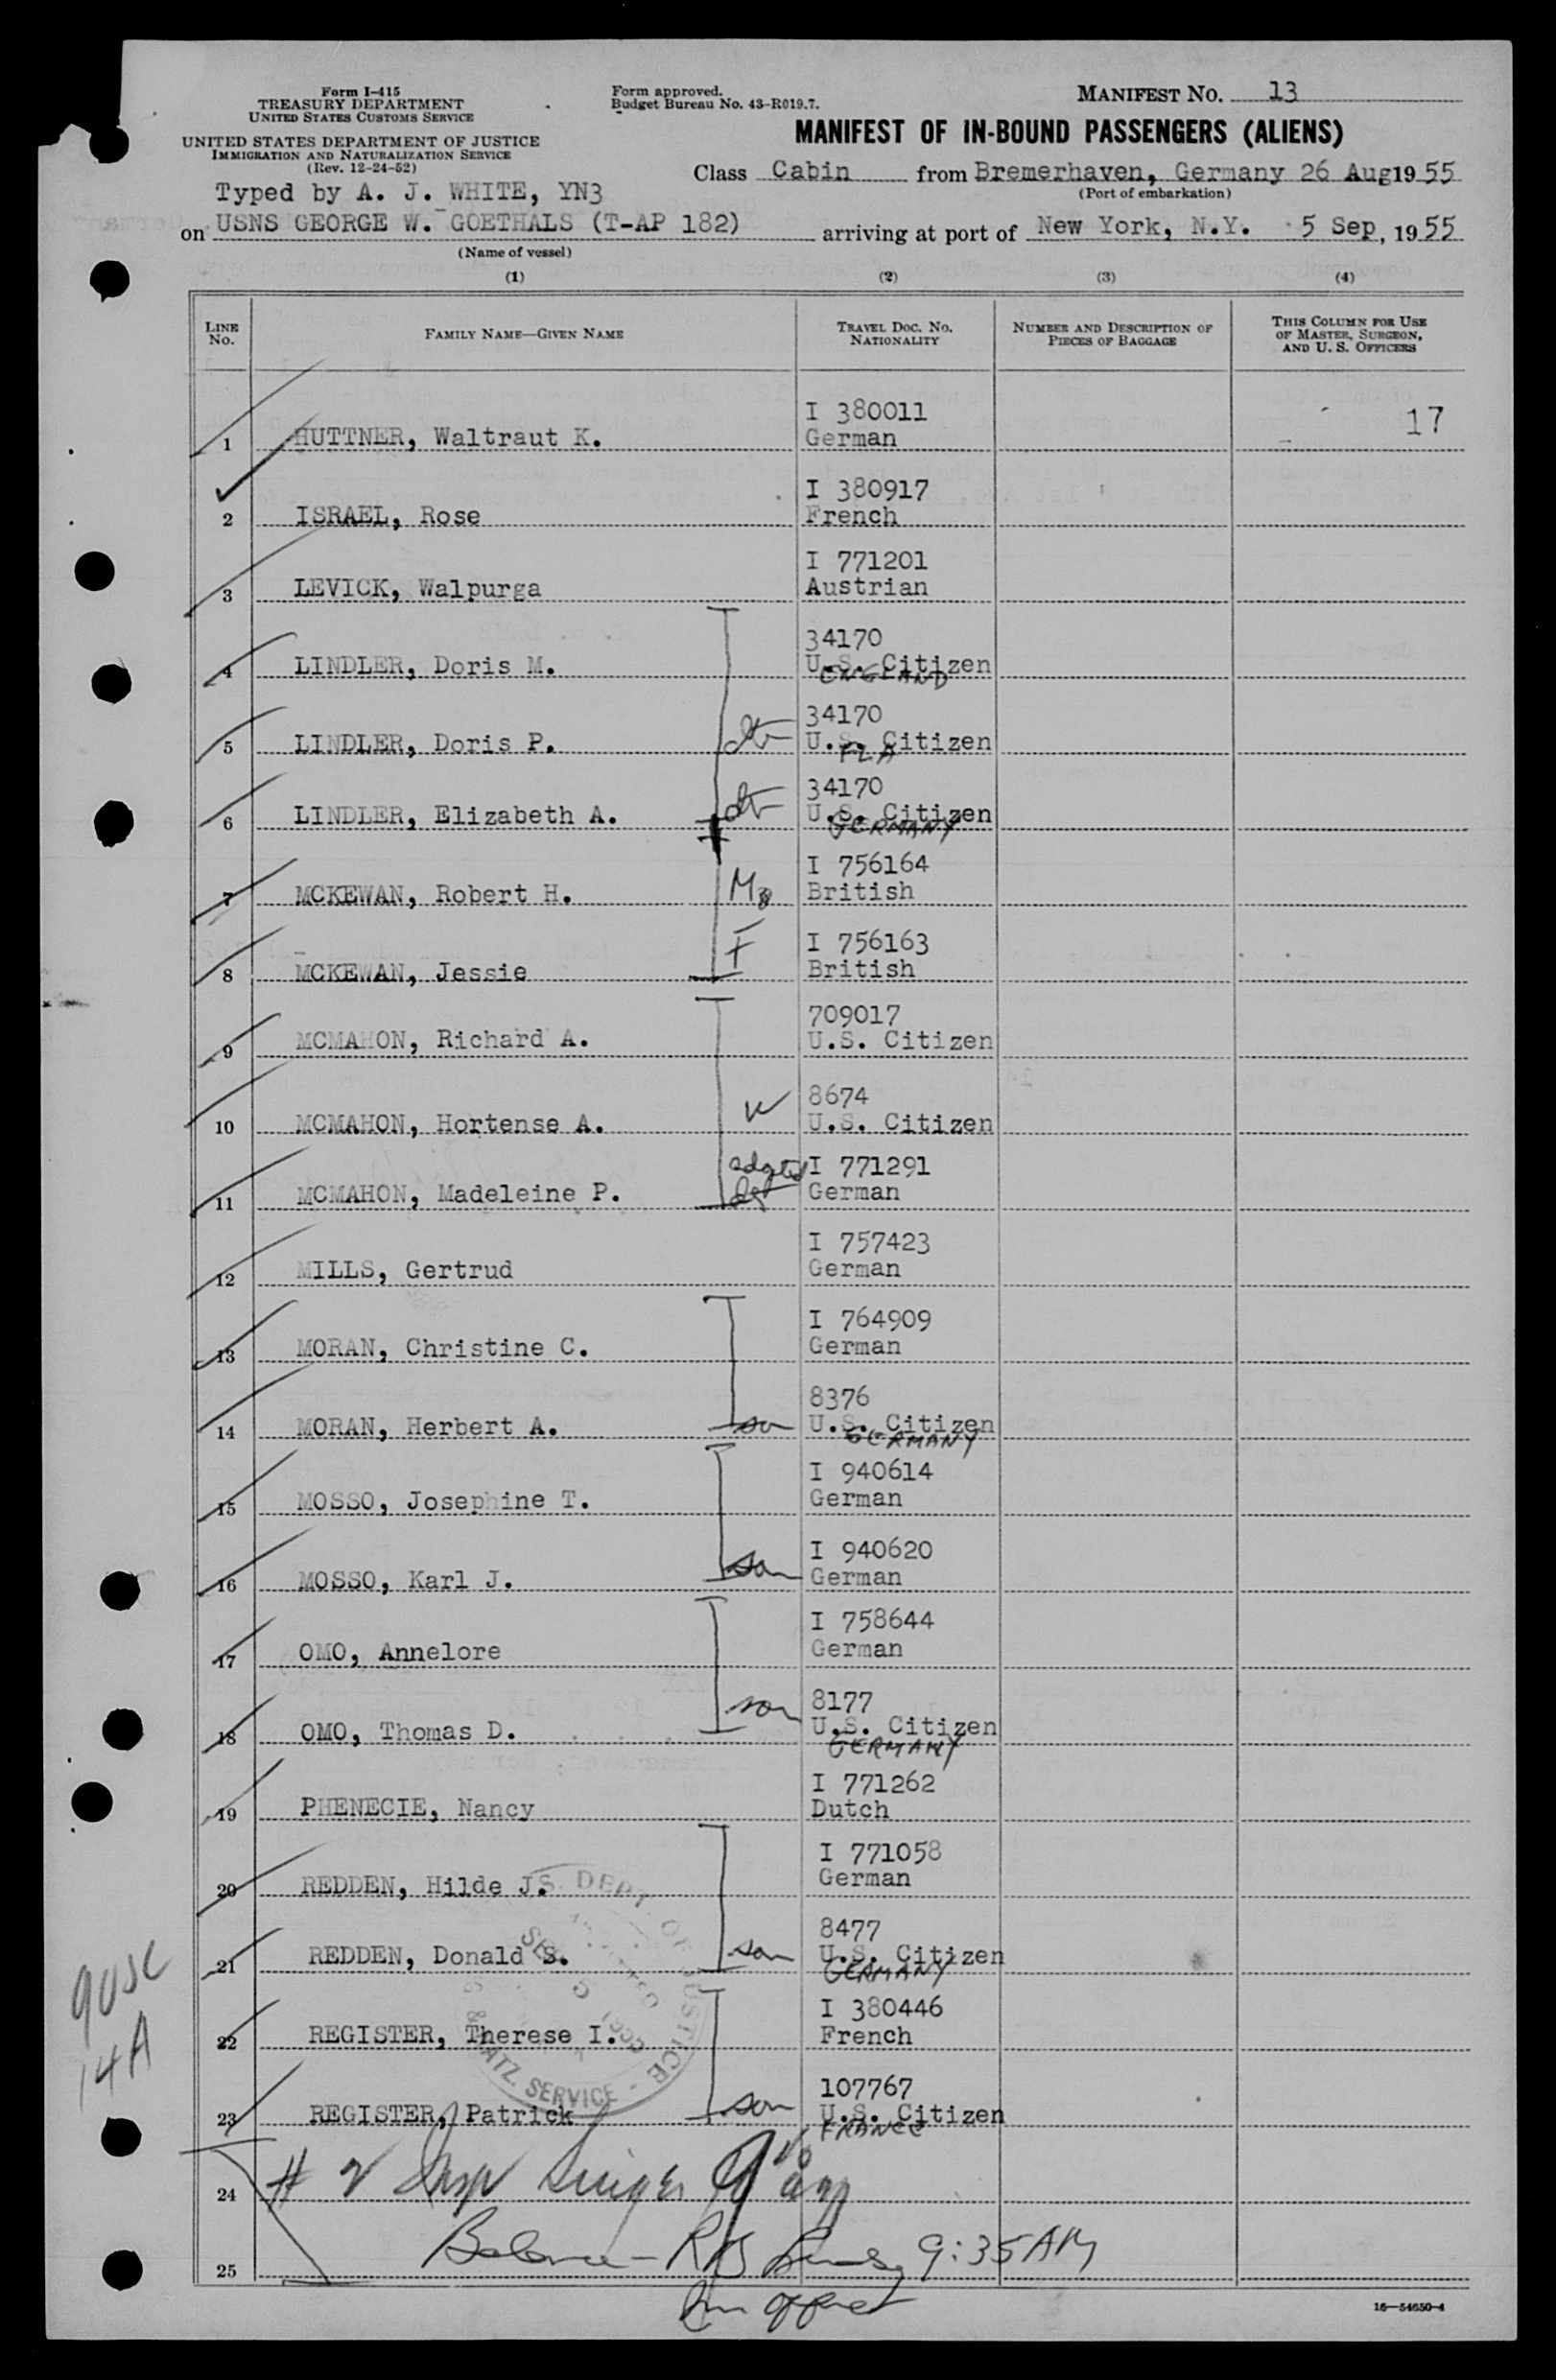 Form I-415
TREASURY DEPARTMENT
UNITED STATES CUSTOMS SERVICE
UNITED STATES DEPARTMENT OF JUSTICE
IMMIGRATION AND NATURALIZATION SERVICE
(Rev. 12-24-52)
Typed by A. J. WHITE, YN3
Form approved.
Budget Bureau No. 43-R019.7.
MANIFEST NO. 13
MANIFEST OF IN-BOUND PASSENGERS (ALIENS)
Class Cabin from Bremerhaven, Germany 26 Aug 1955
(Port of embarkation)
on USNS GEORGE W. GOETHALS (T-AP 182) arriving at port of New York, N.Y. 5 Sep, 1955
(Name of vessel)
(1) (2) (3) (4)
LINE NO.
FAMILY NAME—GIVEN NAME
TRAVEL DOC. NO. NATIONALITY
NUMBER AND DESCRIPTION OF PIECES OF BAGGAGE
THIS COLUMN FOR USE OF MASTER, SURGEON, AND U. S. OFFICERS
I 380011 17
1 HUTTNER, Waltraut K. German
I 380917
2 ISRAEL, Rose French
I 771201
3 LEVICK, Walpurga Austrian
34170
4 LINDLER, Doris M. U.S. Citizen
ENGLAND
34170
5 LINDLER, Doris P. dtr U.S. Citizen
FLA
34170
6 LINDLER, Elizabeth A. dtr U.S. Citizen
GERMANY
I 756164
7 MCKEWAN, Robert H. British
I 756163
8 MCKEWAN, Jessie F British
709017
9 MCMAHON, Richard A. U.S. Citizen
8674
10 MCMAHON, Hortense A. W U.S. Citizen
adopted I 771291
11 MCMAHON, Madeleine P. German
I 757423
12 MILLS, Gertrud German
I 764909
13 MORAN, Christine C. German
8376
14 MORAN, Herbert A. son U.S. Citizen
GERMANY
I 940614
15 MOSSO, Josephine T. German
I 940620
16 MOSSO, Karl J. son German
I 758644
17 OMO, Annelore German
8177
18 OMO, Thomas D. son U.S. Citizen
GERMANY
I 771262
19 PHENECIE, Nancy Dutch
I 771058
20 REDDEN, Hilde J. German
8477
21 REDDEN, Donald S. son U.S. Citizen
GERMANY
I 380446
22 REGISTER, Therese I. French
107767
23 REGISTER, Patrick son U.S. Citizen
FRANCE
S. DEPT. OF JUSTICE
& NATZ. SERVICE -
9USC
14A
24 # 2 Insp Singer
25 Balance - RB 9:35 AM
16—54650-4